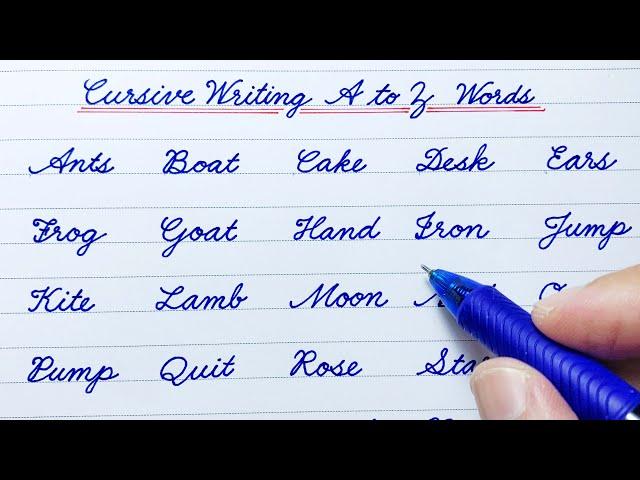 Cursive Writing A to Z Words
Ants Boat Cake Desk Ears
Frog Goat Hand Iron Jump
Kite Lamb Moon
Pump Quit Rose